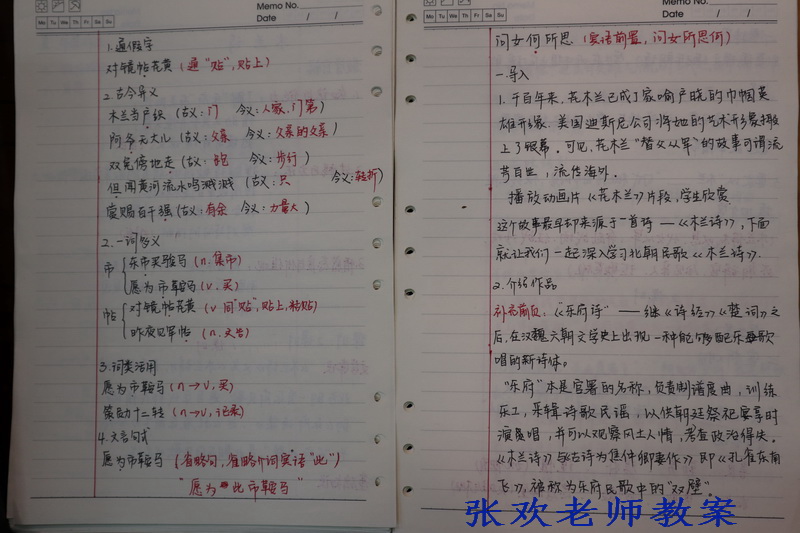 Memo No.
Mo Tu We Th Fr Sa Su
Date / /
1.通假字
对镜帖花黄(通“贴”,贴上)
2.古今异义
木兰当户织(古义:门 今义:人家、门第)
阿爷无大儿(古义:父亲 今义:父亲的父亲)
双兔傍地走(古义:跑 今义:步行)
但闻黄河流水鸣溅溅(古义:只 今义:转折)
赏赐百千强(古义:有余 今义:力量大)
2.一词多义
市
东市买骏马(n.集市)
愿为市鞍马(v.买)
帖
对镜帖花黄(v 同“贴”,贴上,粘贴)
昨夜见军帖(n.文告)
3.词类活用
愿为市鞍马(n→v,买)
策勋十二转(n→v,记录)
4.文言句式
愿为市鞍马(省略句,省略介词宾语“此”)
“愿为此市鞍马”
Memo No.
Mo Tu We Th Fr Sa Su
Date / /
问女何所思(宾语前置,问女所思何)
一.导入
1.千百年来,花木兰已成了家喻户晓的巾帼英
雄形象.美国迪斯尼公司将她的花木开形象搬
上了银幕.可见,花木兰“替父从军”的故事可谓流
芳百世,流传海外.
播放动画片《花木兰》片段,学生欣赏.
这个故事最早却来源于一首诗——《木兰诗》,下面
就让我们一起深入学习北朝民歌《木兰诗》.
2.介绍作品
《乐府诗》——继《诗经》《楚词》之
后,在汉魏六朝文学史上出现一种能够配乐歌
唱的新诗体。
“乐府”本是官署的名称,负责制谱度曲,训练
乐工,采辑诗歌民谣,以供朝廷祭祀宴享时
演奏唱,并可以观察风土人情,考查政治得失。
《木兰诗》与《古诗为焦仲卿妻作》即《孔雀东南
飞》,被称为乐府民歌中的“双璧”.
张欢老师教案